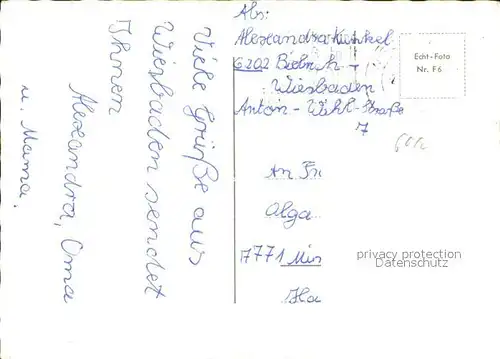 Viele Grüße aus
Wiesbaden sendet
Ihnen
Alexandra, Oma
u. Mama.
Abs:
Alexandra Kunkel
6202 Biebrich -
Wiesbaden
Anton - Wehl - Straße
7
Echt-Foto
Nr. F6
An Fr
Olga
7771
Ha
privacy protection
Datenschutz